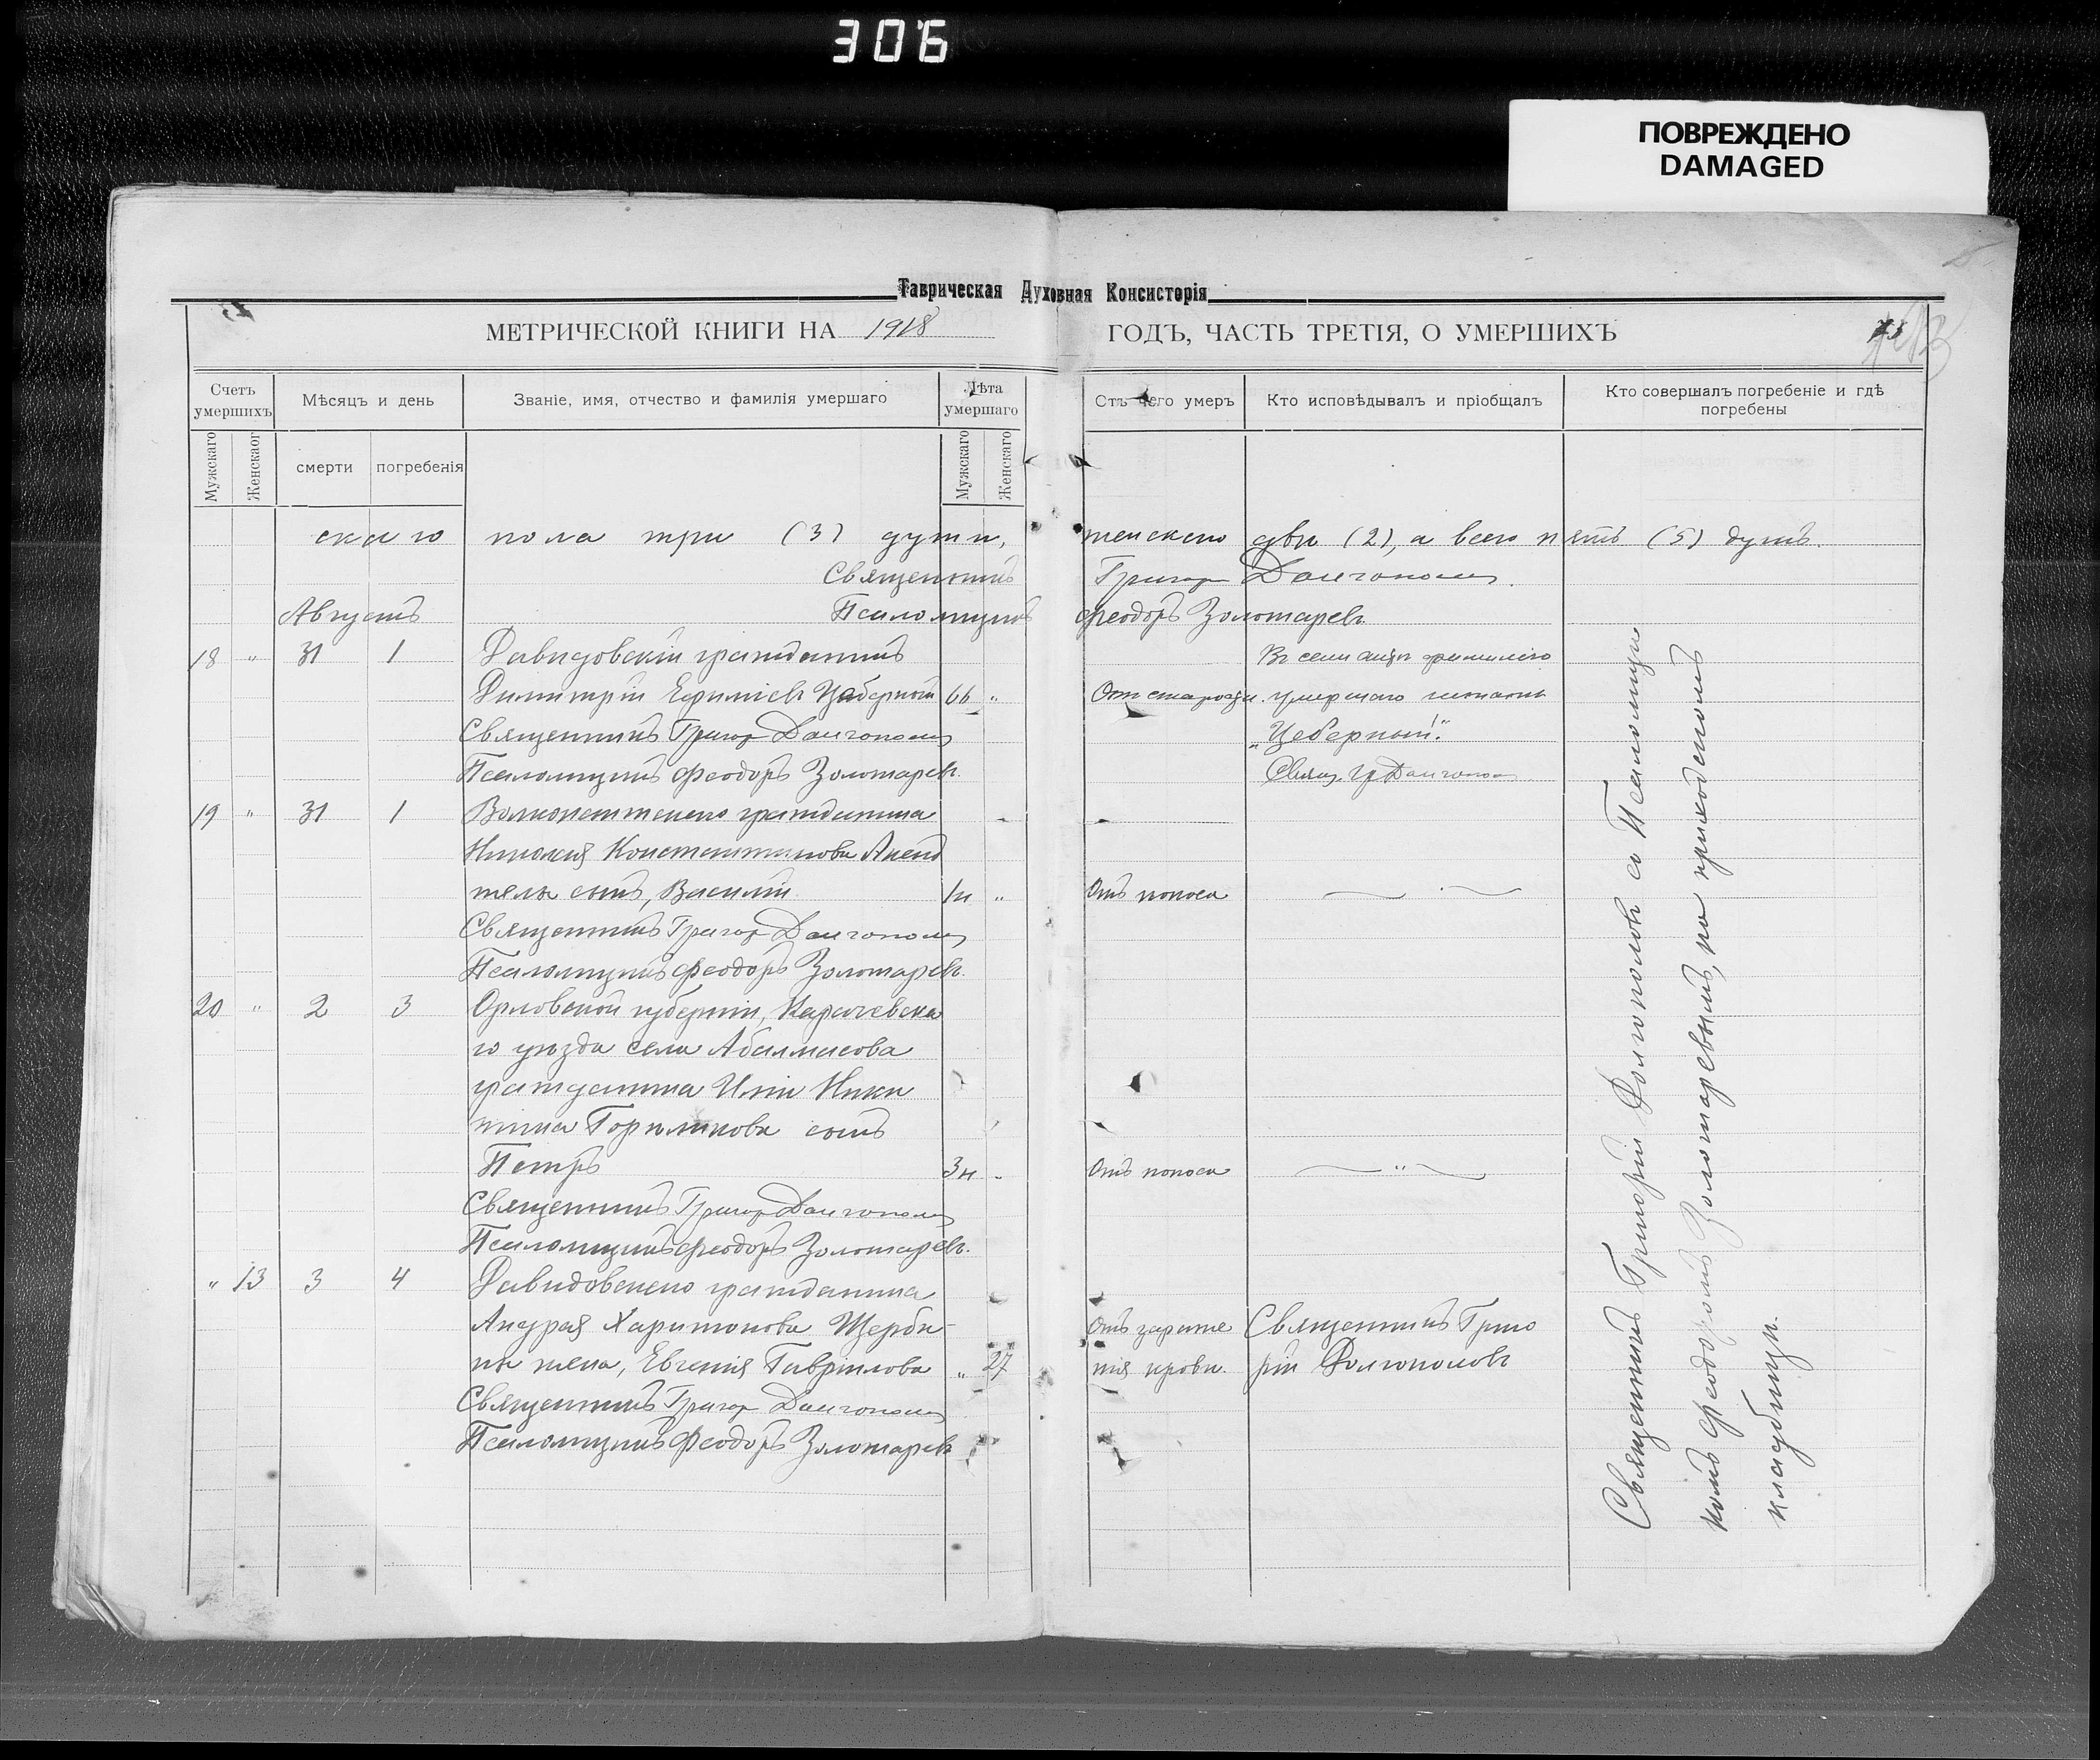 306
ПОВРЕЖДЕНО
DAMAGED
Таврическая Духовная Консисторія
МЕТРИЧЕСКОЙ КНИГИ НА 1918 ГОДЪ, ЧАСТЬ ТРЕТІЯ, О УМЕРШИХЪ
Счетъ умершихъ
Мѣсяцъ и день
Званіе, имя, отчество и фамилія умершаго
Лѣта умершаго
Отъ чего умеръ
Кто исповѣдывалъ и пріобщалъ
Кто совершалъ погребеніе и гдѣ погребены
Мужскаго
Женскаог
смерти
погребенія
Мужскаго
Женскаго
скаго пола три (3) души, женскаго двѣ (2), а всего пять (5) душъ.
Священникъ Григор Долгополов
Августъ Псаломщикъ Феодоръ Золотаревъ
18 " 31 1 Давидовскій гражданинъ
Димитрій Ефиміевъ Цеберный 66 " От старости. умершаго
Священникъ Григор Долгополов "Цеберный".
Псаломщикъ Феодоръ Золотаревъ. Свящ. Гр Долгополов
19 " 31 1 гражданина
Николая Константинова
сынъ, Василій 1н " Отъ поноса
Священникъ Григор Долгополов
Псаломщикъ Феодоръ Золотаревъ.
20 " 2 3 Орловской губерніи, Карачевска
го уѣзда села
гражданина Иліи Ники
тина сынъ
Петръ 3н " Отъ поноса "
Священникъ Григор Долгополов
Псаломщикъ Феодоръ Золотаревъ.
" 13 3 4 Давидовскаго гражданина
Андрея Харитонова Щерби-
ны жена, Евгенія Гавріилова " 27 Отъ зараже нія крови. Священникъ Григо рій Долгополовъ
Священникъ Григор Долгополов
Псаломщикъ Феодоръ Золотаревъ
Священникъ Григорій Долгополовъ со Псаломщи
комъ Феодоромъ Золотаревымъ, на приходскомъ
кладбищѣ.